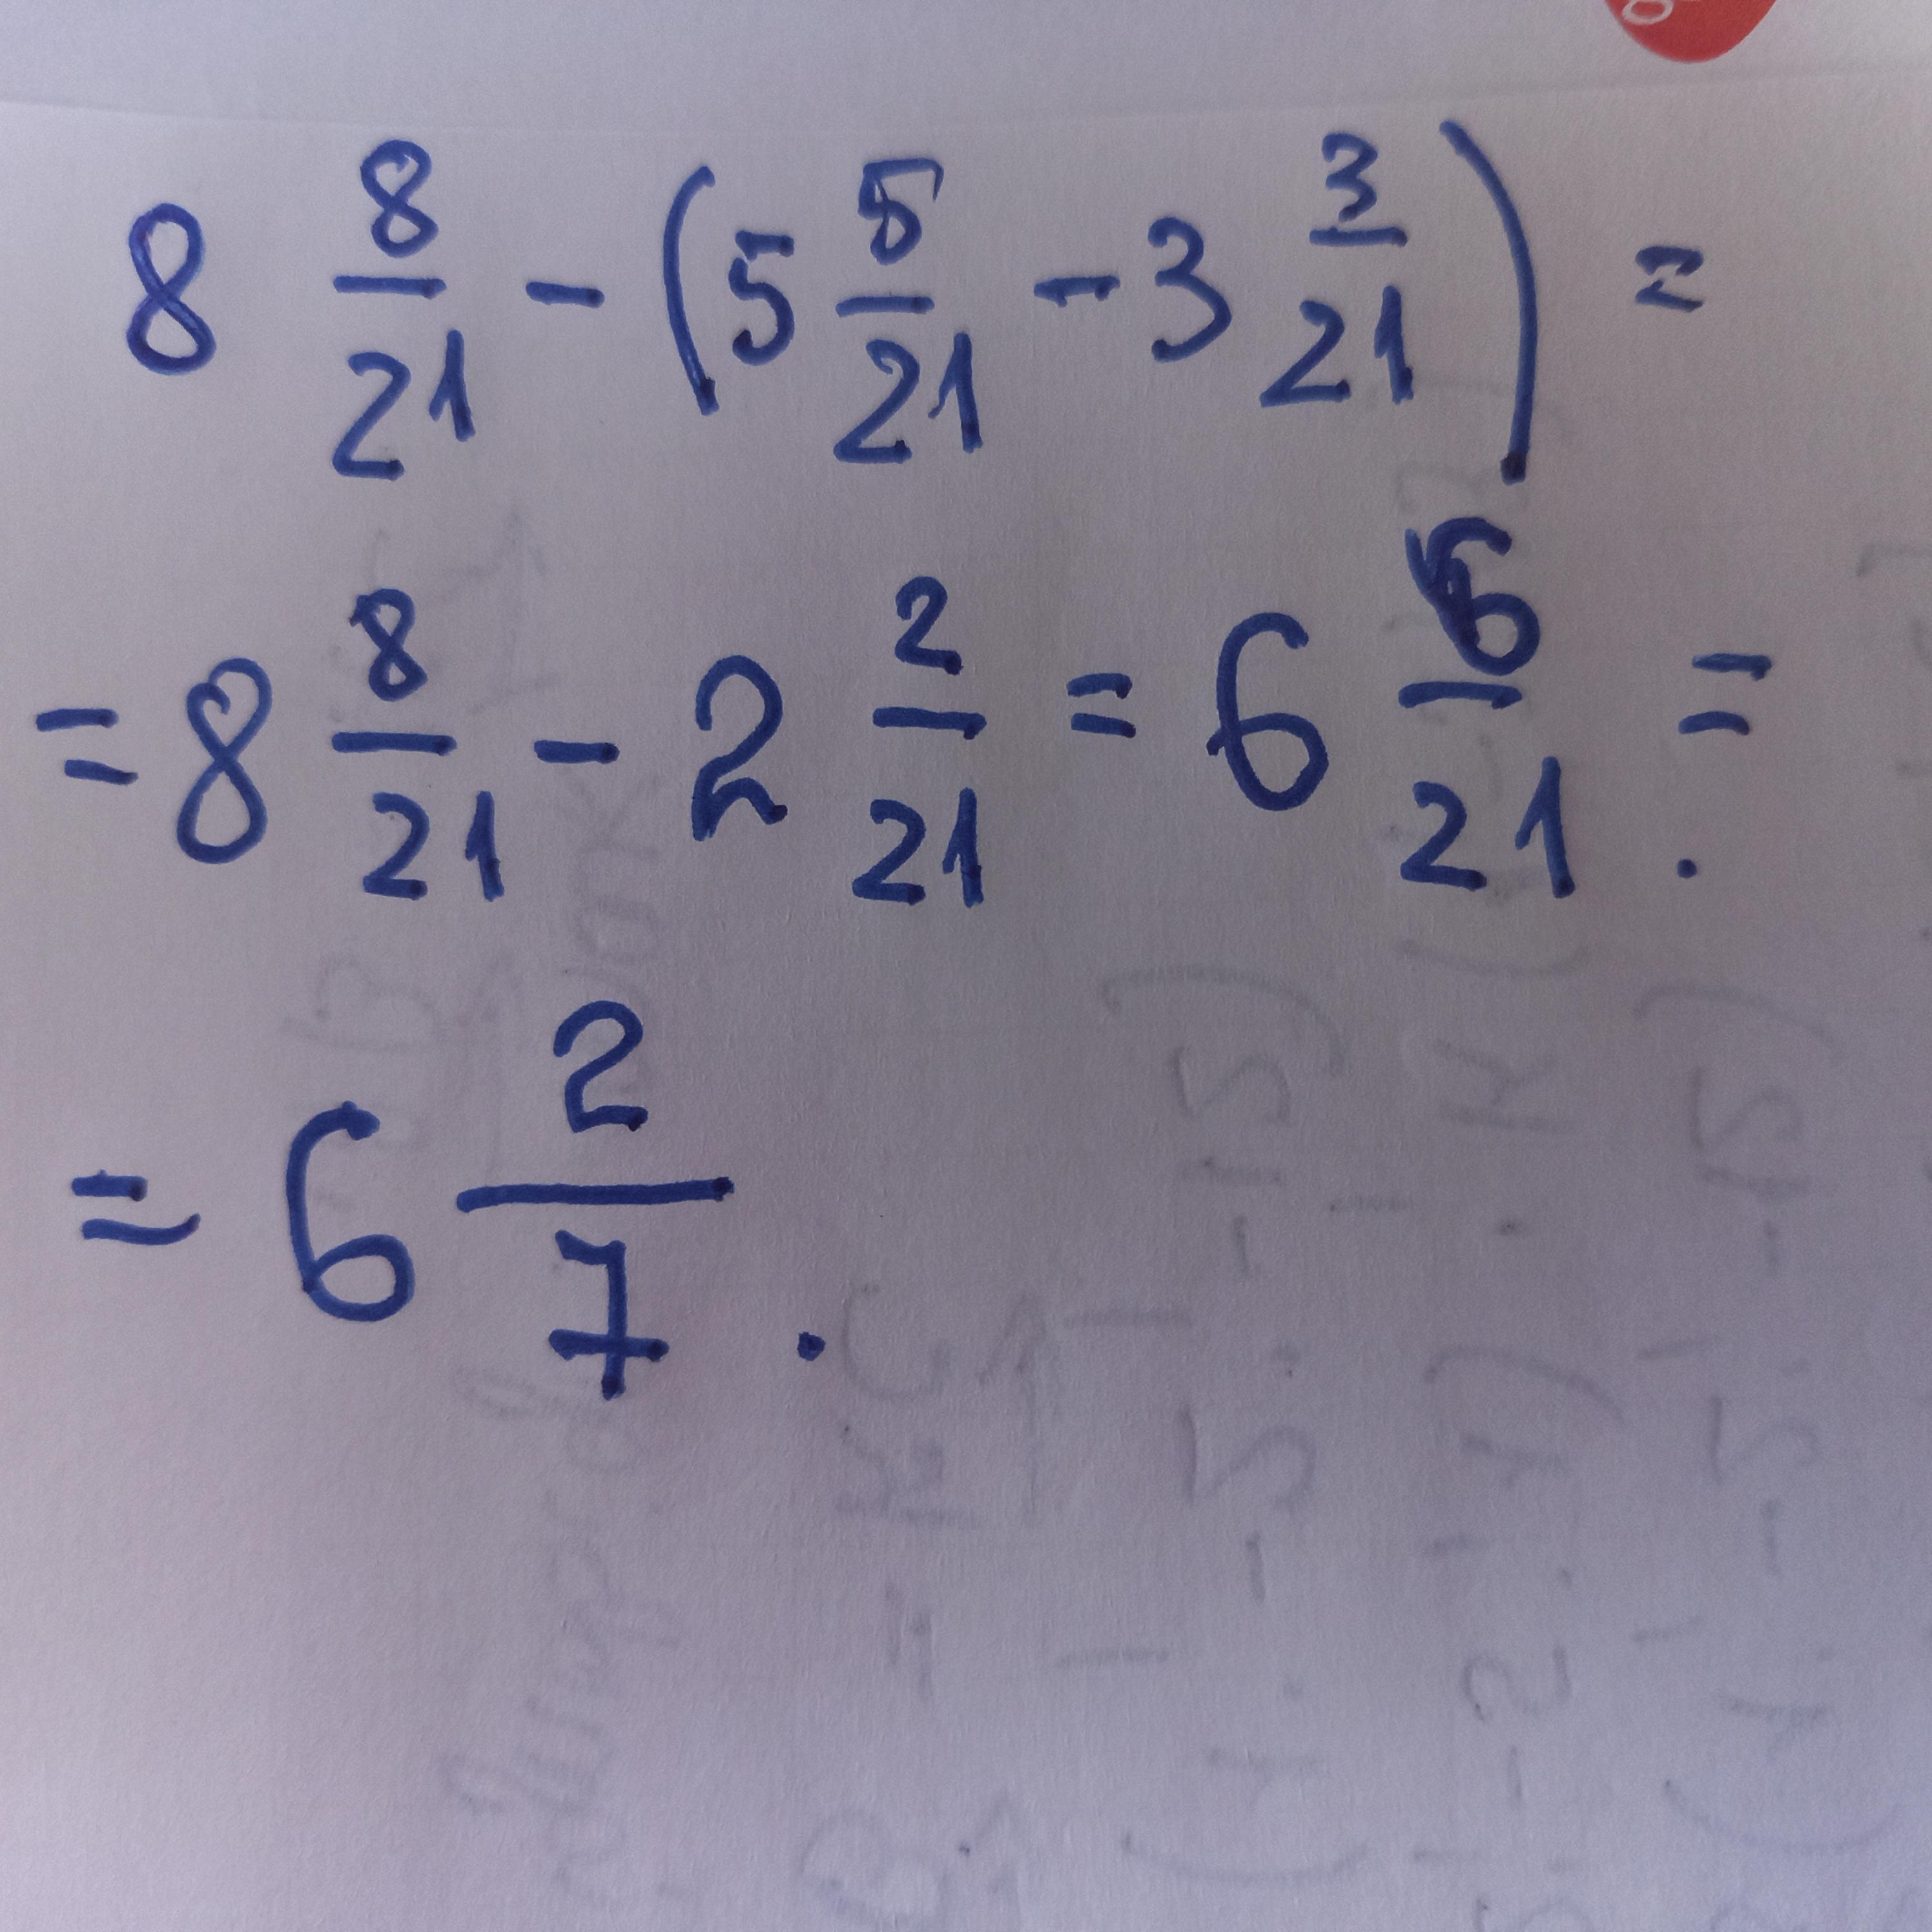 8 8/21 - (5 5/21 - 3 3/21) =
= 8 8/21 - 2 2/21 = 6 6/21 = .
= 6 2/7 .